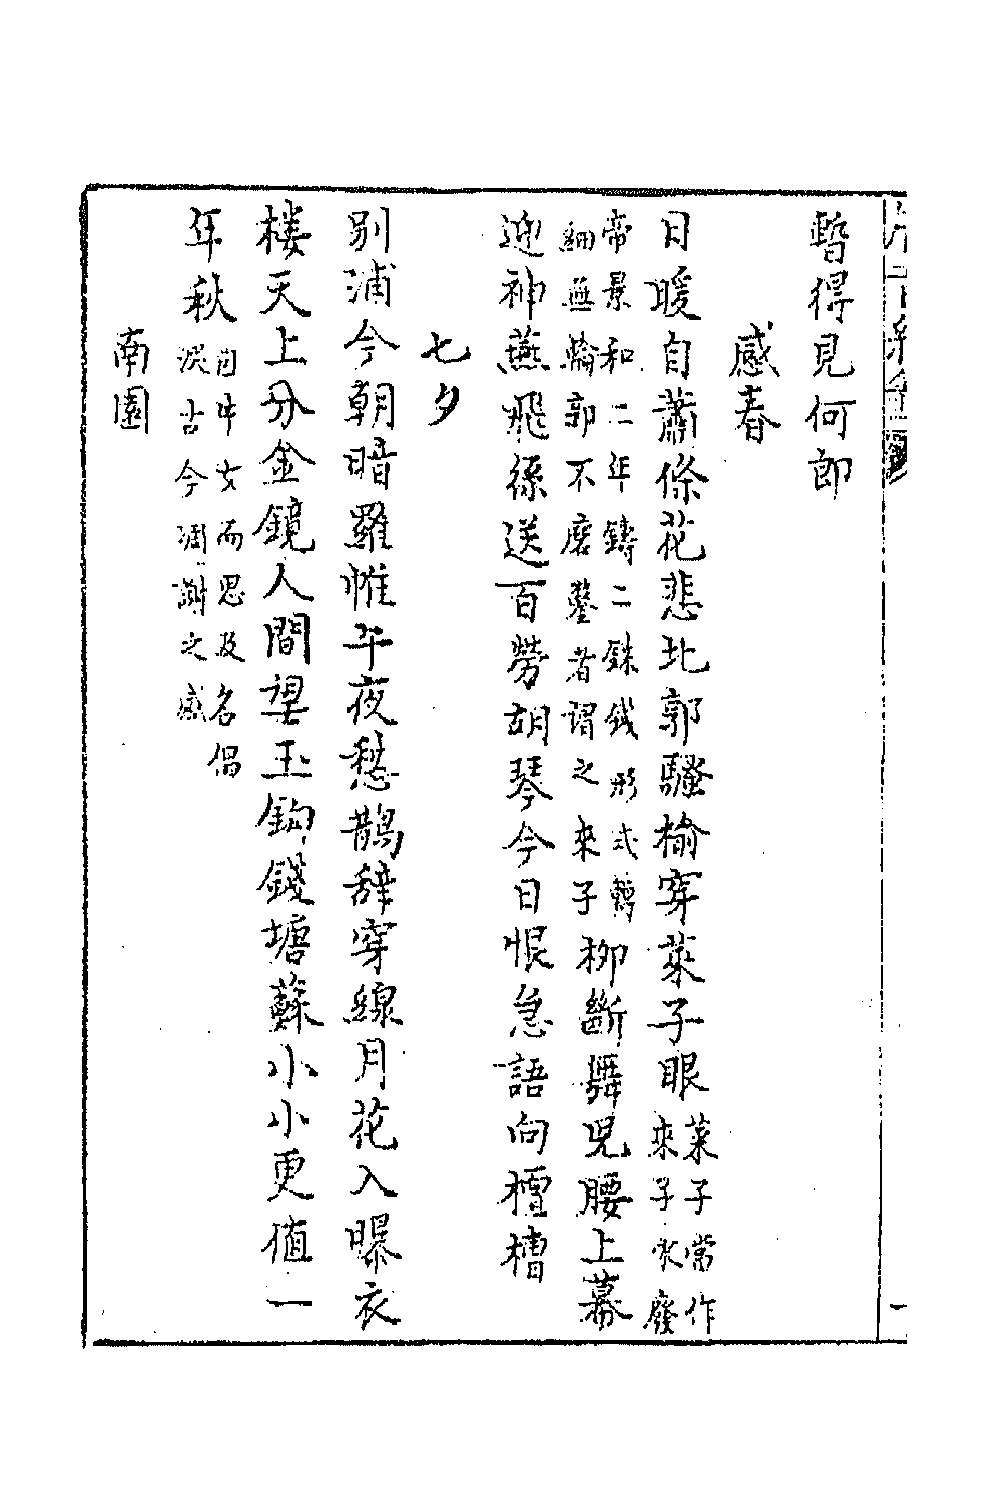 暫得見何郎
感春
日暖自蕭條花悲北郭騷榆穿萊子眼菜子常作來子宋廢
帝景和二年鑄二銖錢形式轉細無輪郭不磨鑿者謂之來子柳斷舞兒腰上幕
迎神燕飛絲送百勞胡琴今日恨急語向檀槽
七夕
別浦今朝暗羅帷午夜愁鵲辭穿線月花入曝衣
樓天上分金鏡人間望玉鈎錢塘蘇小小更值一
年秋因牛女而思及名倡淚古今凋謝之感
南園